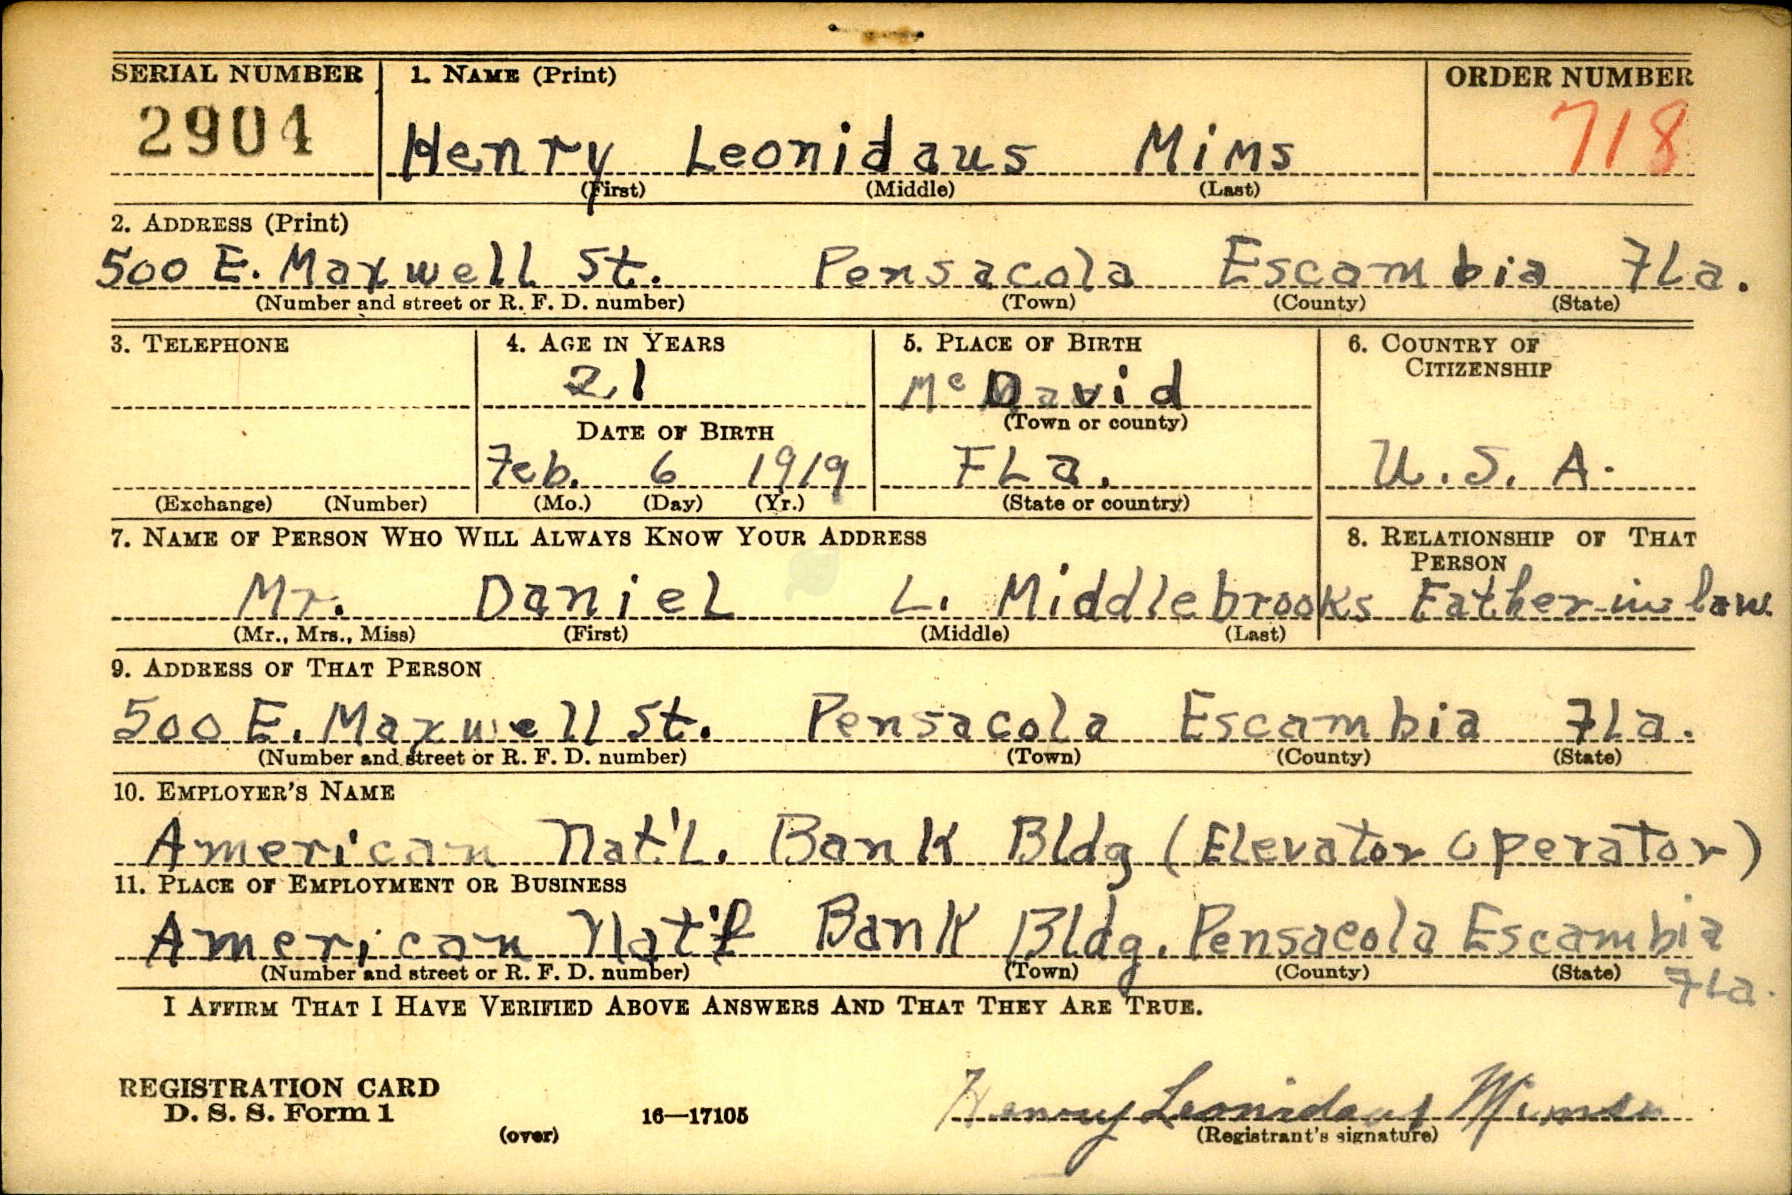 SERIAL NUMBER 1. NAME (Print) ORDER NUMBER
2904 Henry Leonidaus Mims 718
(First) (Middle) (Last)
2. ADDRESS (Print)
500 E. Maxwell St. Pensacola Escambia Fla.
(Number and street or R. F. D. number) (Town) (County) (State)
3. TELEPHONE 4. AGE IN YEARS 5. PLACE OF BIRTH 6. COUNTRY OF CITIZENSHIP
21 McDavid
DATE OF BIRTH (Town or county)
Feb. 6 1919 FLa. U.S.A.
(Exchange) (Number) (Mo.) (Day) (Yr.) (State or country)
7. NAME OF PERSON WHO WILL ALWAYS KNOW YOUR ADDRESS 8. RELATIONSHIP OF THAT PERSON
Mr. Daniel L. Middlebrooks Father in law
(Mr., Mrs., Miss) (First) (Middle) (Last)
9. ADDRESS OF THAT PERSON
500 E. Maxwell St. Pensacola Escambia Fla.
(Number and street or R. F. D. number) (Town) (County) (State)
10. EMPLOYER'S NAME
American Nat'l. Bank Bldg (Elevator operator)
11. PLACE OF EMPLOYMENT OR BUSINESS
American Nat'l Bank Bldg. Pensacola Escambia
(Number and street or R. F. D. number) (Town) (County) (State) Fla.
I AFFIRM THAT I HAVE VERIFIED ABOVE ANSWERS AND THAT THEY ARE TRUE.
REGISTRATION CARD
D. S. S. Form 1 16—17105 Henry Leonidaus Mims
(over) (Registrant's signature)